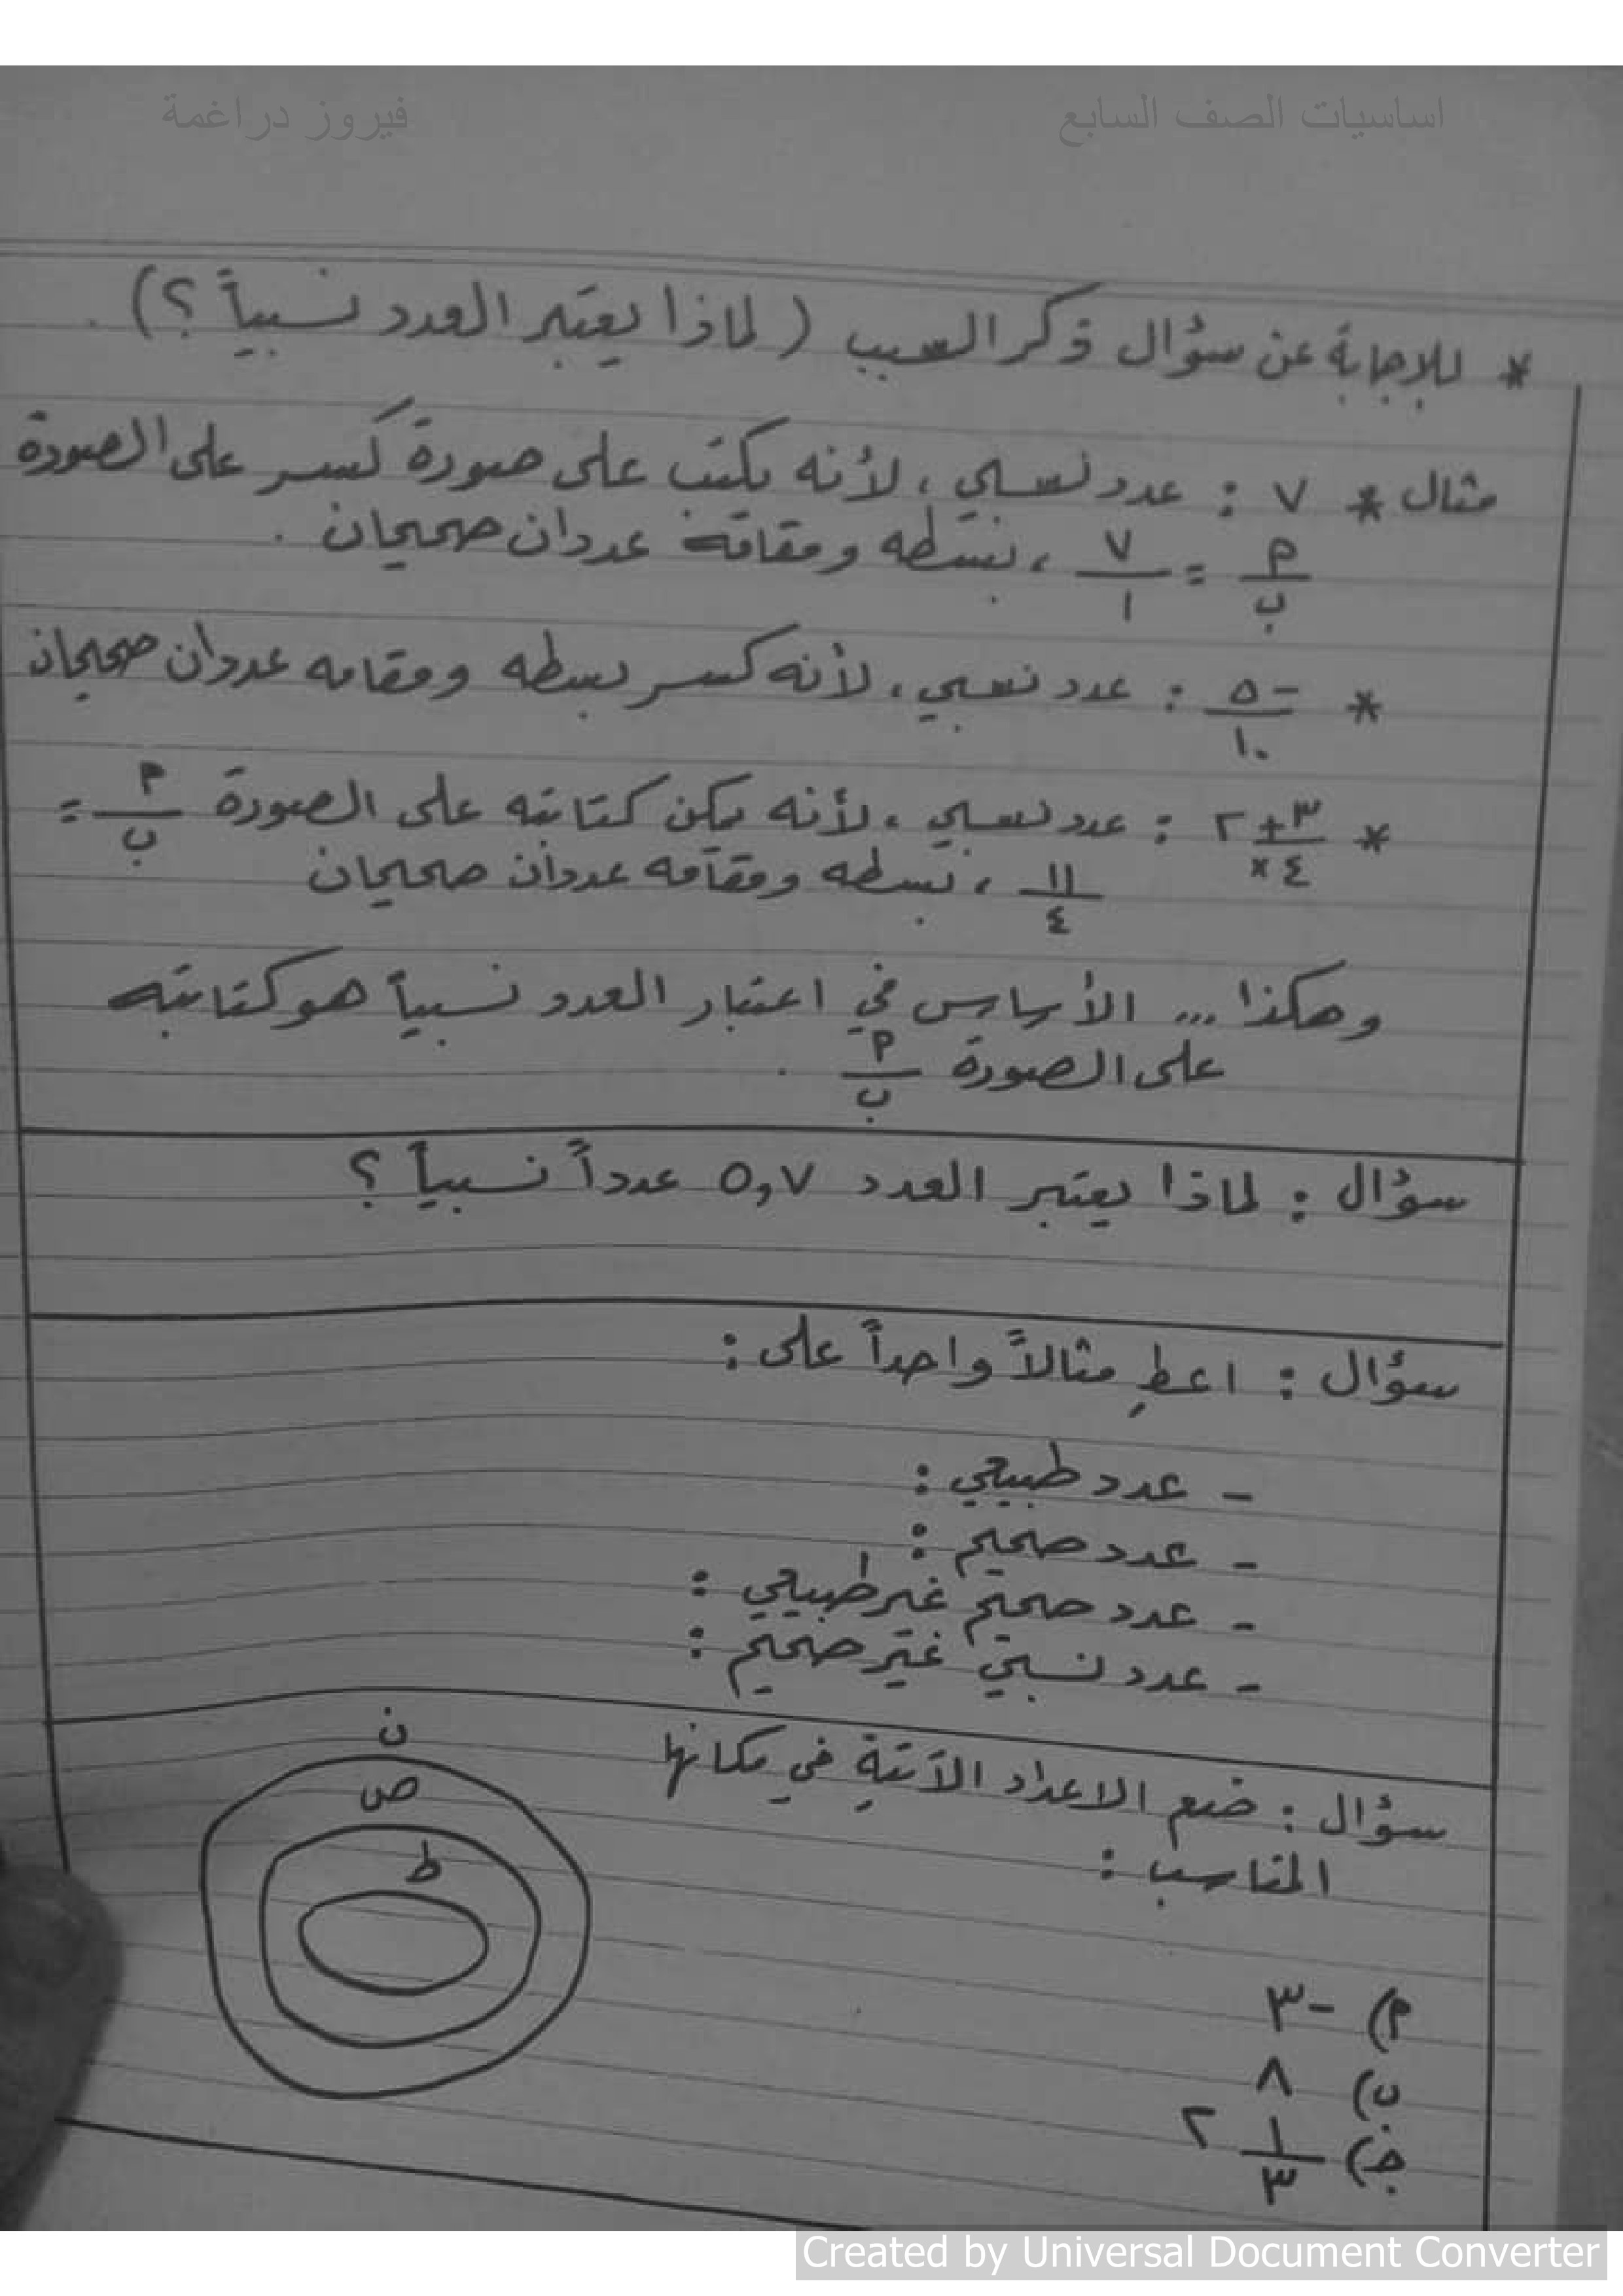 اساسيات الصف السابع
فيروز دراغمة
* للإجابة عن سؤال ذكر السبب (لماذا يعتبر العدد نسبياً؟).
مثال * ٧ : عدد نسبي، لأنه يكتب على صورة كسر على الصورة
أ/ب = ٧/١ ، بسطه ومقامه عددان صحيحان.
* -٥/١٠ : عدد نسبي، لأنه كسر بسطه ومقامه عددان صحيحان
* ٢ +٣/×٤ : عدد نسبي، لأنه يمكن كتابته على الصورة أ/ب =
١١/٤ ، بسطه ومقامه عددان صحيحان
وهكذا ... الأساس في اعتبار العدد نسبياً هو كتابته
على الصورة أ/ب .
سؤال : لماذا يعتبر العدد ٥,٧ عدداً نسبياً ؟
سؤال : اعطِ مثالاً واحداً على :
- عدد طبيعي :
- عدد صحيح :
- عدد صحيح غير طبيعي :
- عدد نسبي غير صحيح :
سؤال : ضع الاعداد الآتية في مكانها
المناسب :
ن
ص
ط
أ) -٣
ب) ٨
جـ) ٢ ١/٣
Created by Universal Document Converter